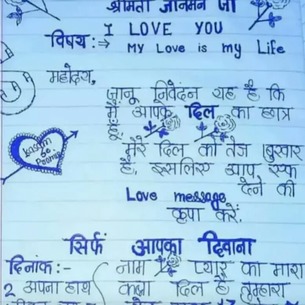 श्रीमती जानमन जी
विषय :→ I LOVE YOU
MY Love is my Life
महोदय,
जानू निवेदन यह है कि
मैं आपके दिल का छात्र
हूँ.
मेरे दिल को तेज बुखार
है, इसलिए आप एक
Love message देने की
कृपा करें.
सिर्फ आपका दिवाना
दिनांक :- नाम प्यार का मारा
2 अपना हाथ कक्षा दिल है तुम्हारा